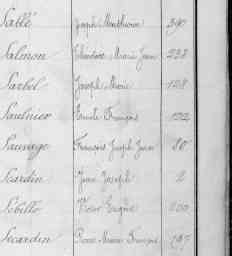 Sallé Joseph Mathurin 390
Salmon Théodore Marie Jean 238
Sarbel Joseph Marie 128
Saulnier Emile François 132
Sauvage François Joseph Jean 80
Scardin Jean Joseph 2
Sébillo Victor Eugène 200
Sicardin Pierre Marie François 197